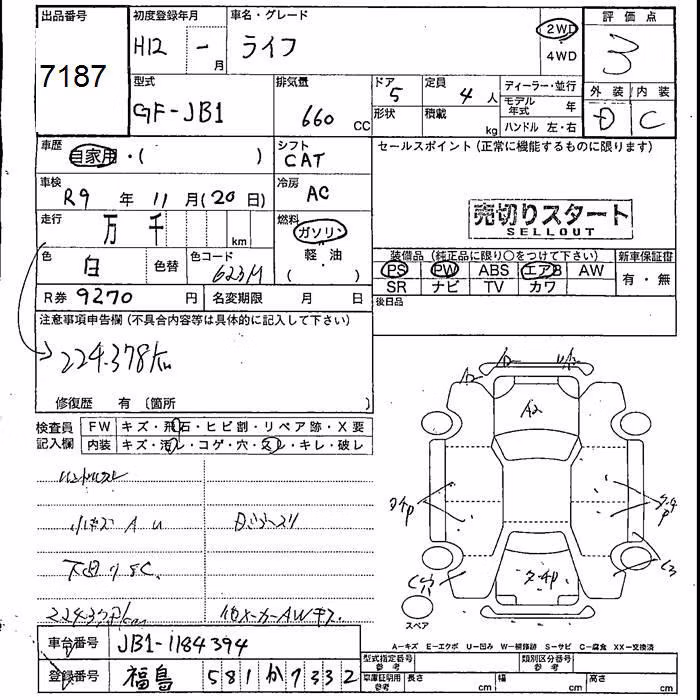 出品番号 初度登録年月 車名・グレード 評価点
7187 H12 - 月 ライフ 2WD 4WD 3
型式 排気量 ドア 定員 ディーラー・並行 外装 内装
GF-JB1 660 CC 5 4 人 モデル年式 年 D C
形状 積載 kg ハンドル 左・右
車歴 自家用・( ) シフト CAT セールスポイント (正常に機能するものに限ります)
車検 R9 年 11 月(20 日) 冷房 AC
売切りスタート
SELLOUT
走行 万 千 km 燃料 ガソリン 軽・油 ( )
色 白 色替 色コード 623M
装備品 (純正品に限り○をつけて下さい) 新車保証書
PS PW ABS エアB AW 有・無
SR ナビ TV カワ
R券 9270 円 名変期限 月 日 後日品
注意事項申告欄 (不具合内容等は具体的に記入して下さい)
224.378km
修復歴 有 (箇所 )
検査員記入欄 FW キズ・飛石・ヒビ割・リペア跡・X要
内装 キズ・汚レ・コゲ・穴・スレ・キレ・破レ
A2
A2
スペア
A-キズ E-エクボ U-凹み W-補修跡 S-サビ C-腐食 XX-交換済
車台番号 JB1-1184394
登録番号 福島 581 か 7332
型式指定番号 参考 類別区分番号 参考
車庫証明用 参考 長さ cm 幅 cm 高さ cm